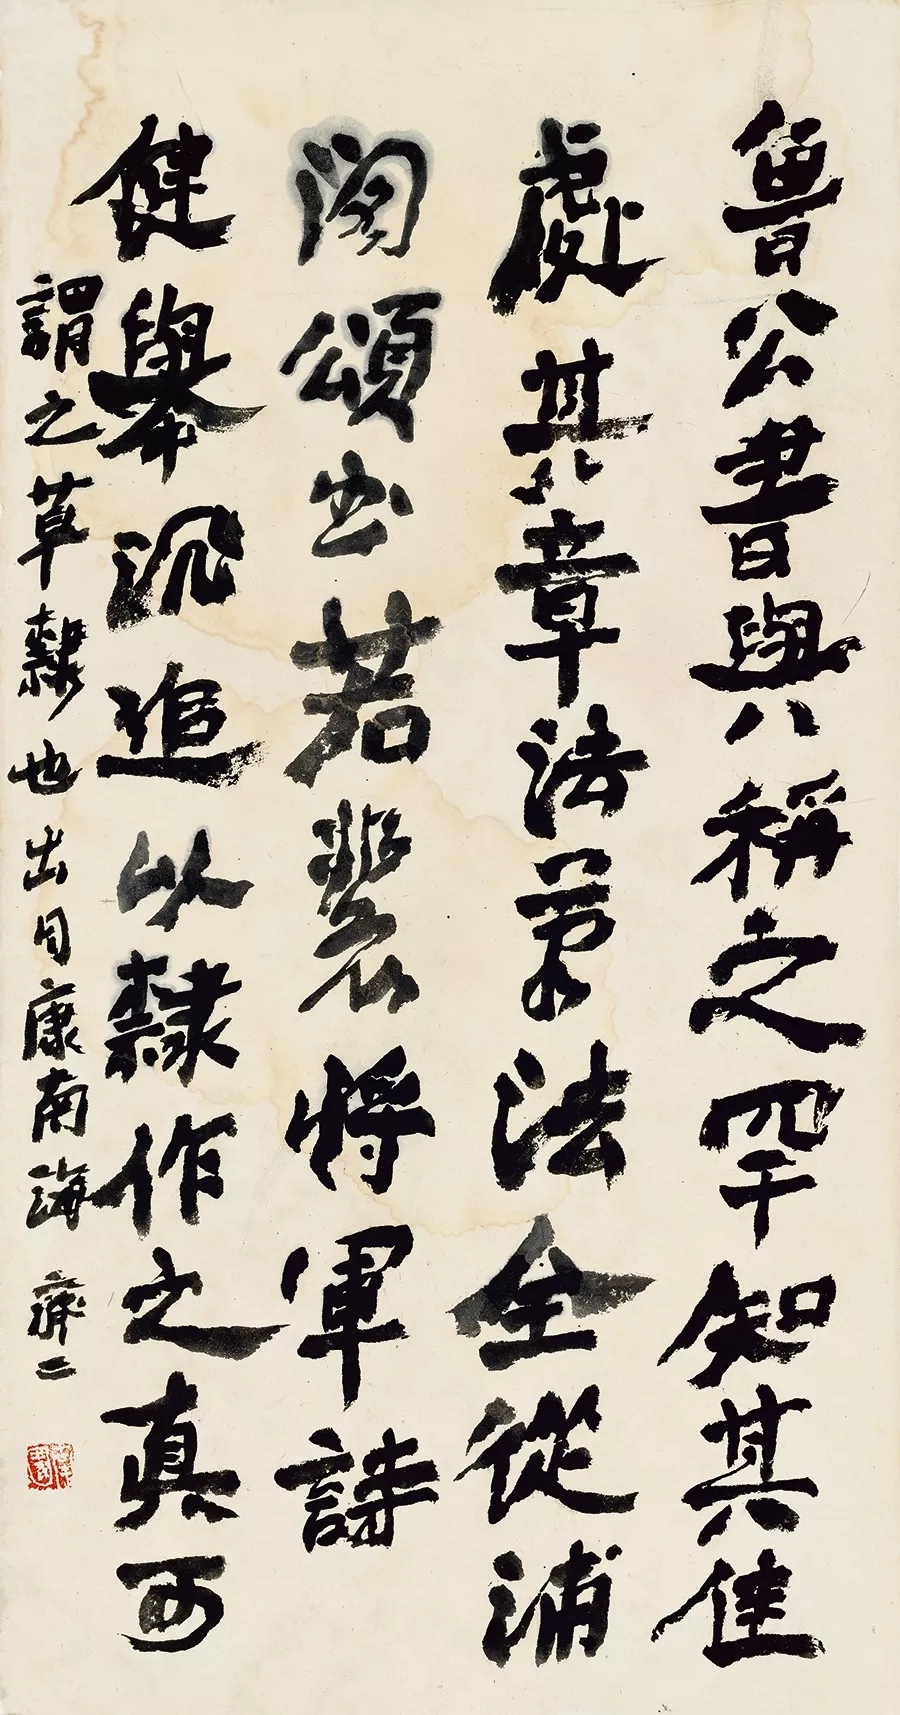 魯公書與稱之罕知其佳
處其章法筆法全從浦
閣頌出若裴將軍詩
健舉沉追以隸作之真可
謂之草隸也出自康南海 齊二